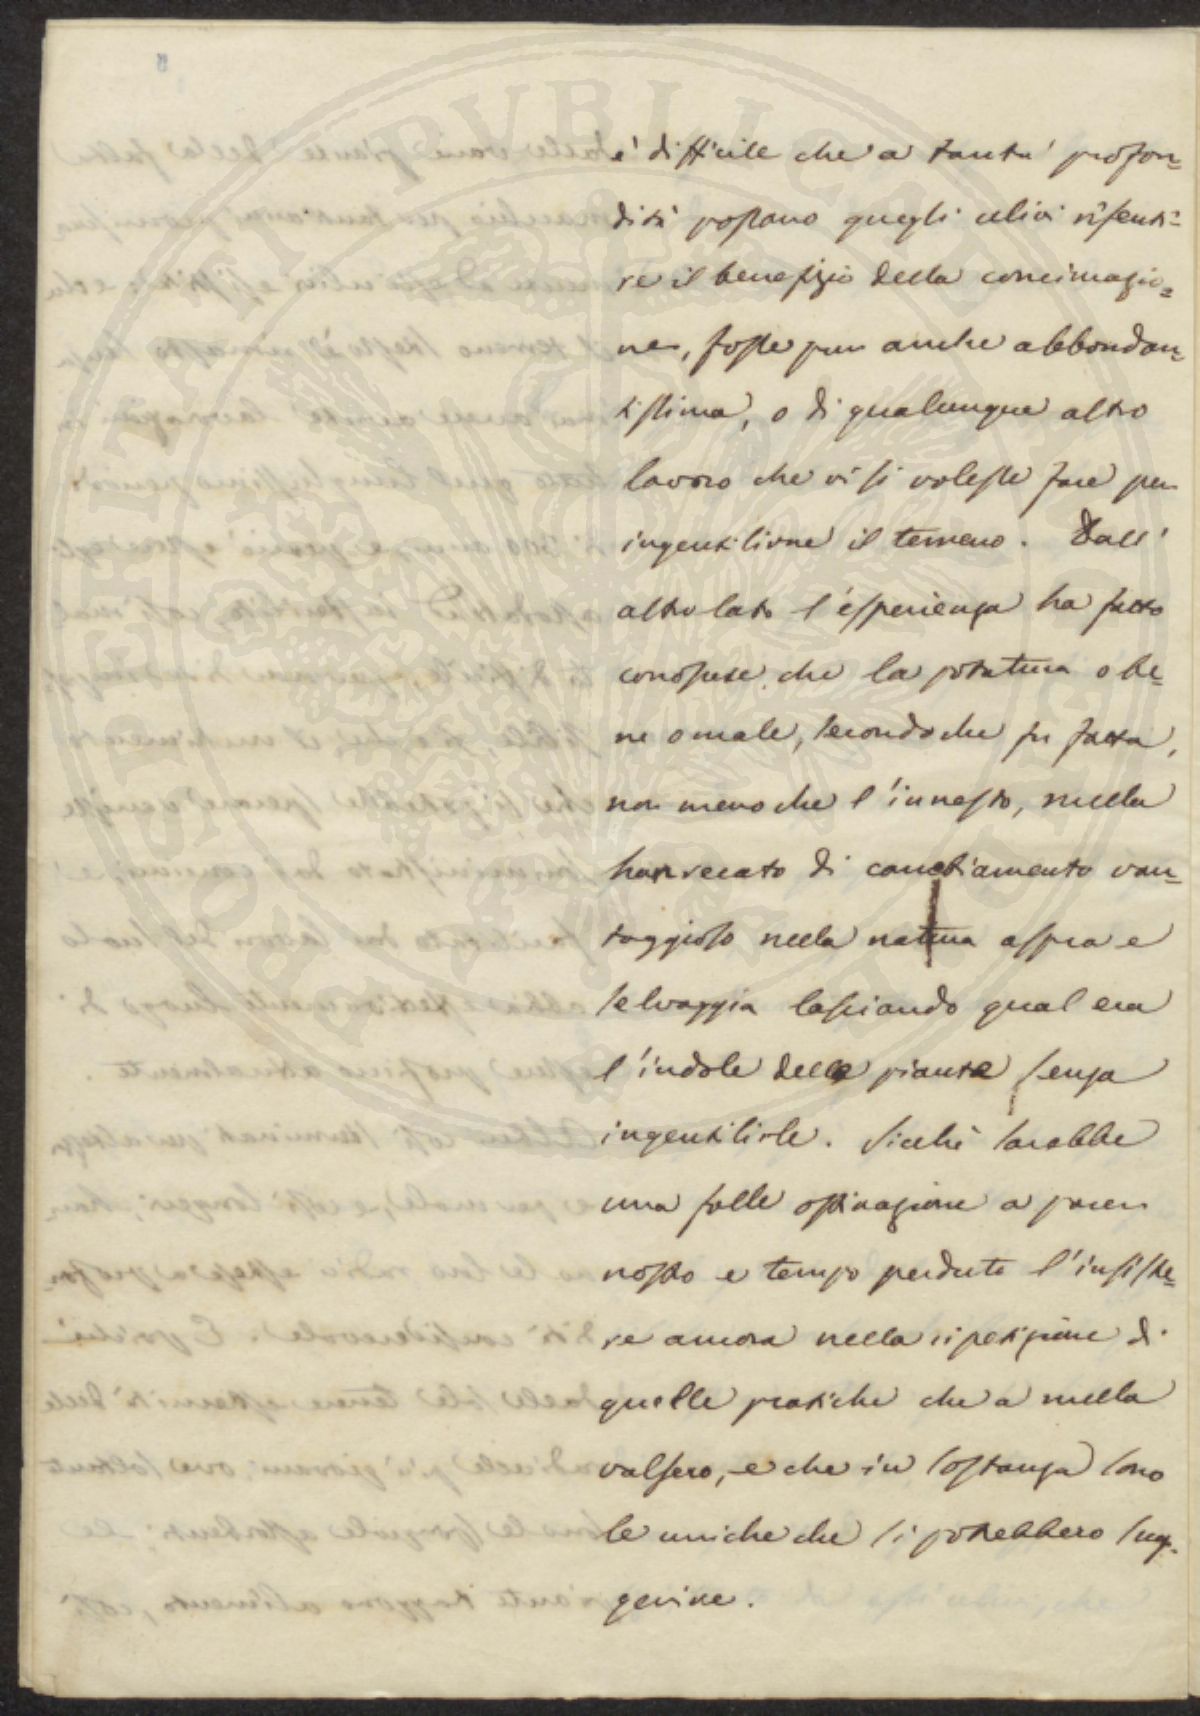 e' difficile che a tanta profon=
dità possano quegli ulivi risenti=
re il benefizio della concimazio=
ne, fosse pur anche abbondan=
tissima, o di qualunque altro
lavoro che vi si volesse fare per
ingentilirne il terreno. Dall'
altro lato l'esperienza ha fatto
conoscere che la potatura o be=
ne o male, secondo che fu fatta,
non meno che l'innesto, nulla
han recato di cambiamento van=
taggioso nella natura aspra e
selvaggia lasciando qual era
l'indole delle piante senza
ingentilirle. Sicchè sarebbe
una folle ostinazione a parer
nostro e tempo perduto l'insiste=
re ancora nella ripetizione di
quelle pratiche che a nulla
valsero, e che in sostanza sono
le uniche che si potrebbero sug=
gerire.